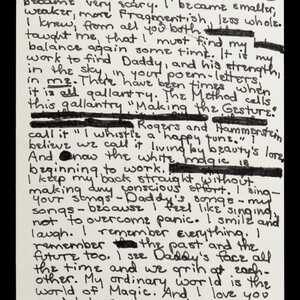 became very scary. I became smaller,
weaker, more fragment-ish, less whole.
I knew, from all you both
taught me, that I must find my
balance again some time. It is my
work to find Daddy, and his strength,
in the sky, in your poem-letters,
in me. There have been times when
it is all gallantry. The Method calls
this gallantry "Making the Gesture."
Rogers and Hammerstein
call it "I whistle a happy tune." I
believe we call it living by beauty's lore
And now the white magic is
beginning to work.
I keep my back straight without
making any conscious effort. I sing-
your songs - Daddy's songs - my
songs - because I feel like singing,
not to overcome panic. I smile and
laugh. I remember everything. I
remember the past and the
future too. I see Daddy's face all
the time and we grin at each-
other. My ordinary world is the
world of Magic. And I love you